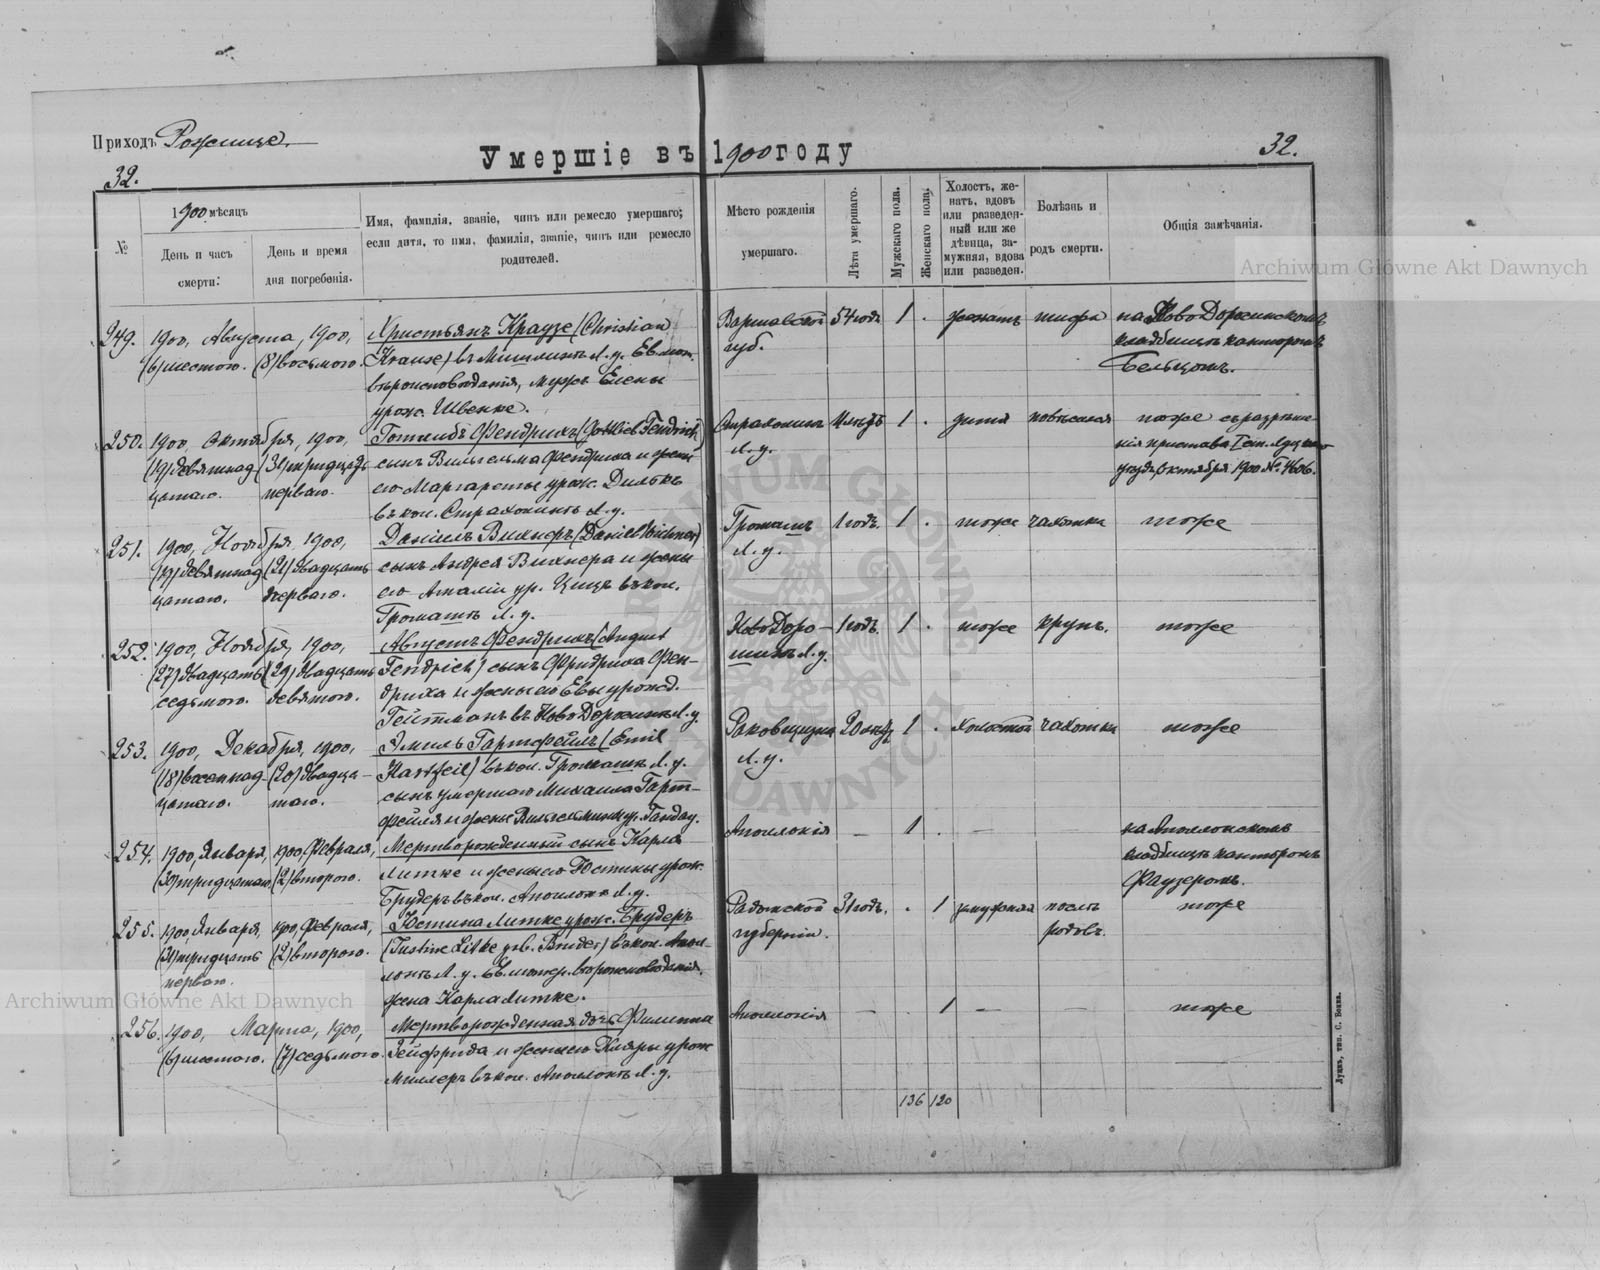 Приходъ Рожище.
Умершіе въ 1900 году
32.
32.
№
1900 мѣсяцъ
День и часъ
смерти:
День и время
дня погребенія.
Имя, фамилія, званіе, чинъ или ремесло умершаго;
если дитя, то имя, фамилія, званіе, чинъ или ремесло
родителей.
Мѣсто рожденія
умершаго.
Лѣта умершаго.
Мужскаго пола.
Женскаго пола.
Холостъ, же-
натъ, вдовъ
или разведен-
ный или же
дѣвица, за-
мужняя, вдова
или разведен.
Болѣзнь и
родъ смерти.
Общія замѣчанія.
249.
1900, Августа, 1900,
(6) шестого. (8) восьмого.
Христьянъ Краузе (Christian
Krause) въ Л. у. Ев. лют.
вѣроисповѣданія, мужъ Елены
урож. Швенке.
Варшавской
губ.
54 годъ
1
.
женатъ
на Ново Дорожинскомъ
кладбищѣ канторомъ
250.
1900 Октября, 1900,
(19) девятнад- (31) тридцать
цатаго. перваго.
Готлибъ Фендрихъ (Gottlieb Fendrich)
сынъ Вильгельма Фендриха и жены
его Маргареты урож. Дильке
въ кол. Страхолинъ Л. у.
Страхолинъ
Л. у.
1
.
дитя
тоже съ разрѣше-
нія пристава I стн. Луцкаго
уѣзд. Октября 1900 № 4606.
251.
1900, Ноября, 1900,
(19) девятнад- (21) двадцать
цатаго. перваго.
Даніилъ Вихнеръ (Daniel Wichner)
сынъ Андрея Вихнера и жены
его Аталіи ур. въ кол.
Громашъ Л. у.
Громашъ
Л. у.
1 годъ.
1
.
тоже
чахотка
тоже
252.
1900, Ноября, 1900,
(27) двадцать (29) двадцать
седьмого. девятого.
Августъ Фендрихъ (August
Fendrich) сынъ Фридриха Фен-
дриха и жены его Евы урожд.
въ Ново Дорожинѣ Л. у.
Ново Доро-
Л. у.
1 годъ.
1
.
тоже
крупъ.
тоже
253.
1900, Декабря, 1900,
(18) восемнад- (20) двадца-
цатаго. таго.
Эмиль Гартфейль (Emil
Hartfeil) въ кол. Громашъ Л. у.
сынъ умершаго Михаила Гарт-
фейля и жены Вильгельмины ур. Гандау.
Раковщизна
Л. у.
20
1
.
холостой
чахотка
тоже
254.
1900, Января, 1900, Февраля,
(30) тридцатаго (2) второго.
Мертворожденный сынъ Карла
Литке и жены его Юстины урож.
Брудеръ въ кол. Аполоніи Л. у.
Аполонія
—
1
.
—
на Аполонскомъ
кладбищѣ канторомъ
Фаузеромъ.
255.
1900, Января, 1900, Февраля,
(31) тридцать (2) второго.
перваго.
Юстина Литке урож. Брудеръ
(Justine Litke geb. Bruder) въ кол. Апол-
лонѣ Л. у. Ев. лютер. вѣроисповѣданія,
жена Карла Литке.
Радомской
губерніи.
31 годъ.
.
1
замужняя
послѣ
родовъ.
тоже
256.
1900, Марта, 1900,
(6) шестого. (7) седьмого.
Мертворожденная дочь Филиппа
Зейфрида и жены его Клары урож
Миллеръ въ кол. Аполонѣ Л. у.
Аполонія
—
.
1
—
—
тоже
136
120
Луцкъ, тип. С. Бонка.
Archiwum Główne Akt Dawnych
Archiwum Główne Akt Dawnych
ARCHIWUM GŁÓWNE
AKT DAWNYCH